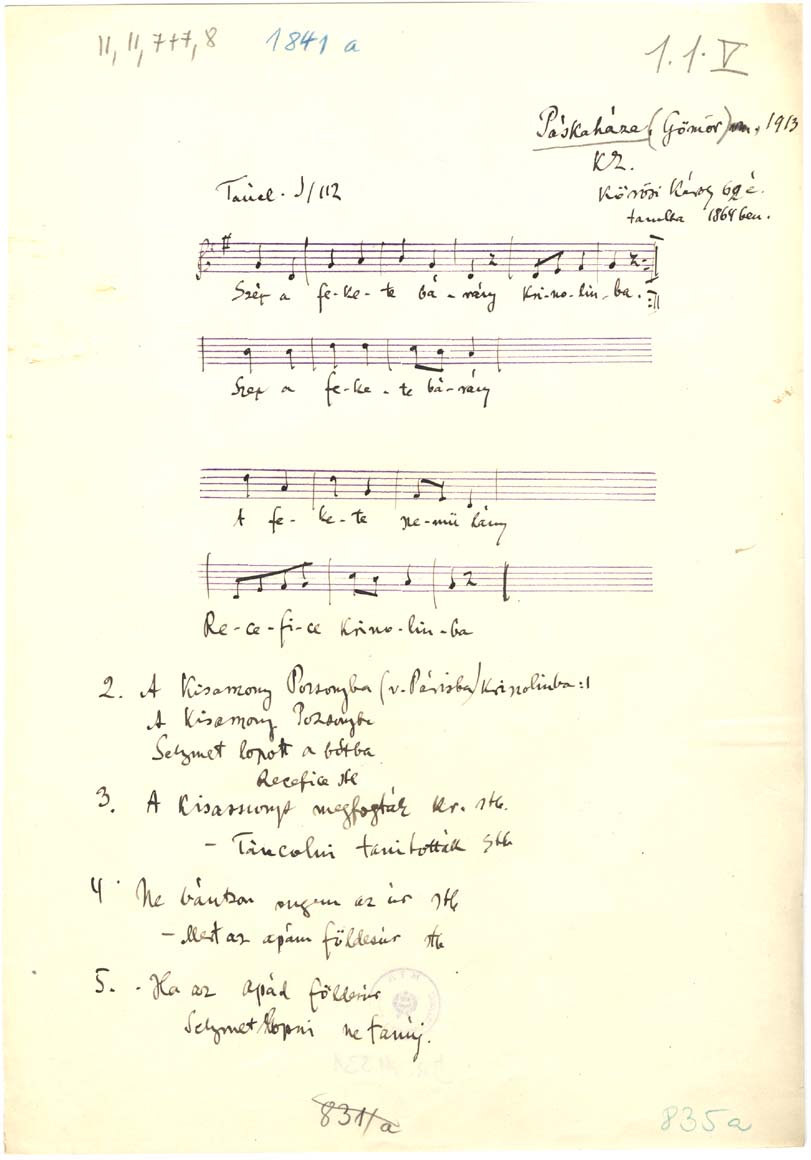 11, 11, 7+7, 8 1841 a 1.1.V
Páskaháza (Gömör) m., 1913
KZ.
Kőrösi Károly 69 é.
tanulta 1864ben.
Táncl. ♩/112
Szép a fe-ke-te bá-rány kri-no-lin-ba.
Szép a fe-ke-te bá-rány
A fe-ke-te ne-mü lány
Re-ce-fi-ce krino-lin-ba
2. A Kisasszony Pozsonyba (v. Párisba) krinolinba :|
A Kisasszony Pozsonyba
Selymet lopott a bótba
Recefice stb
3. A Kisasszonyt megfogták kr. stb.
- Táncolni tanították stb
4. Ne bántson engem az úr stb
- Mert az apám földesúr stb
5. - Ha az apád földesúr
Selymet lopni ne tanúj.
831/a 835a